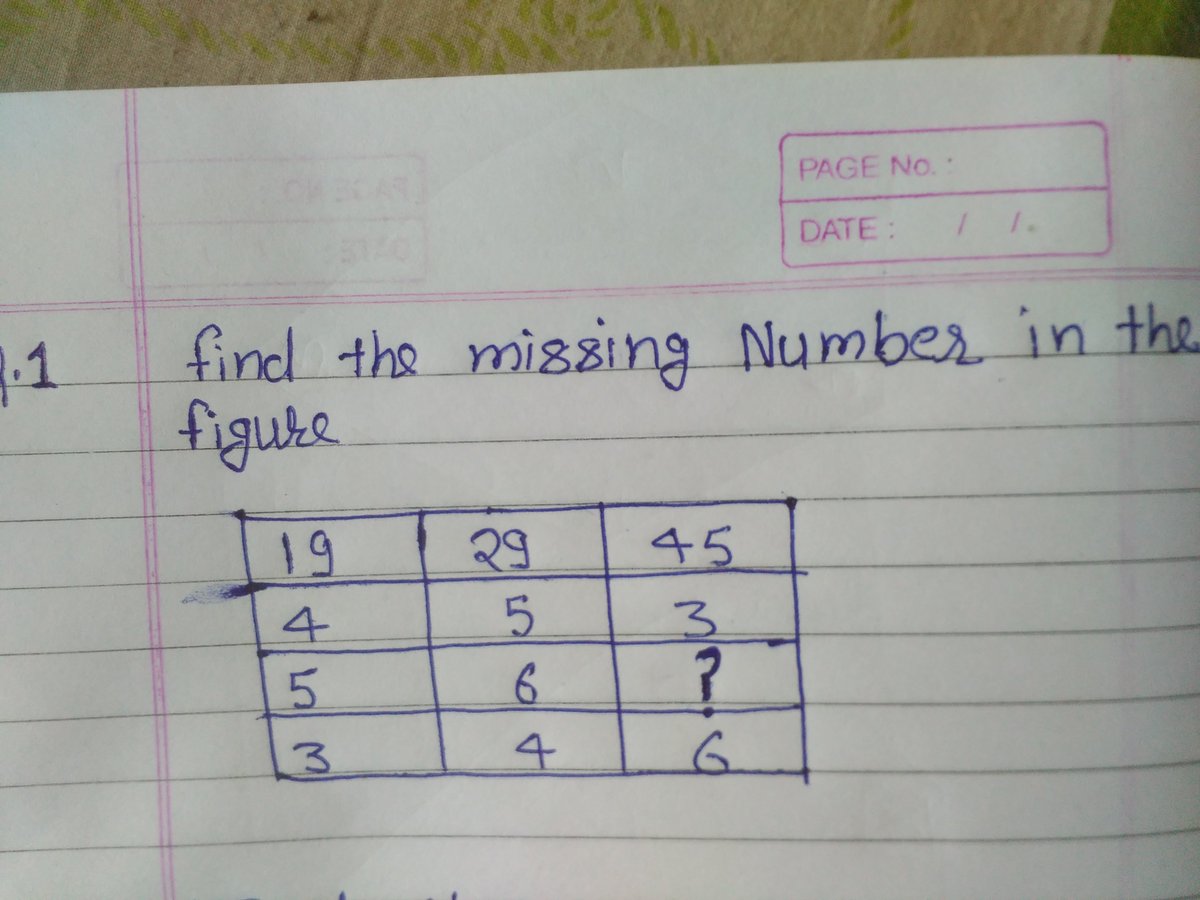 PAGE No. :
DATE : / /
.1 find the missing Number in the
figure
19 29 45
4 5 3
5 6 ?
3 4 6